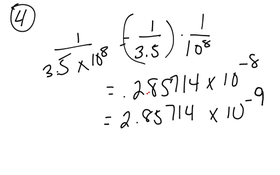 ④
1 / (3.5 × 10⁸) = (1 / 3.5) · 1 / 10⁸
= .285714 × 10⁻⁸
= 2.85714 × 10⁻⁹